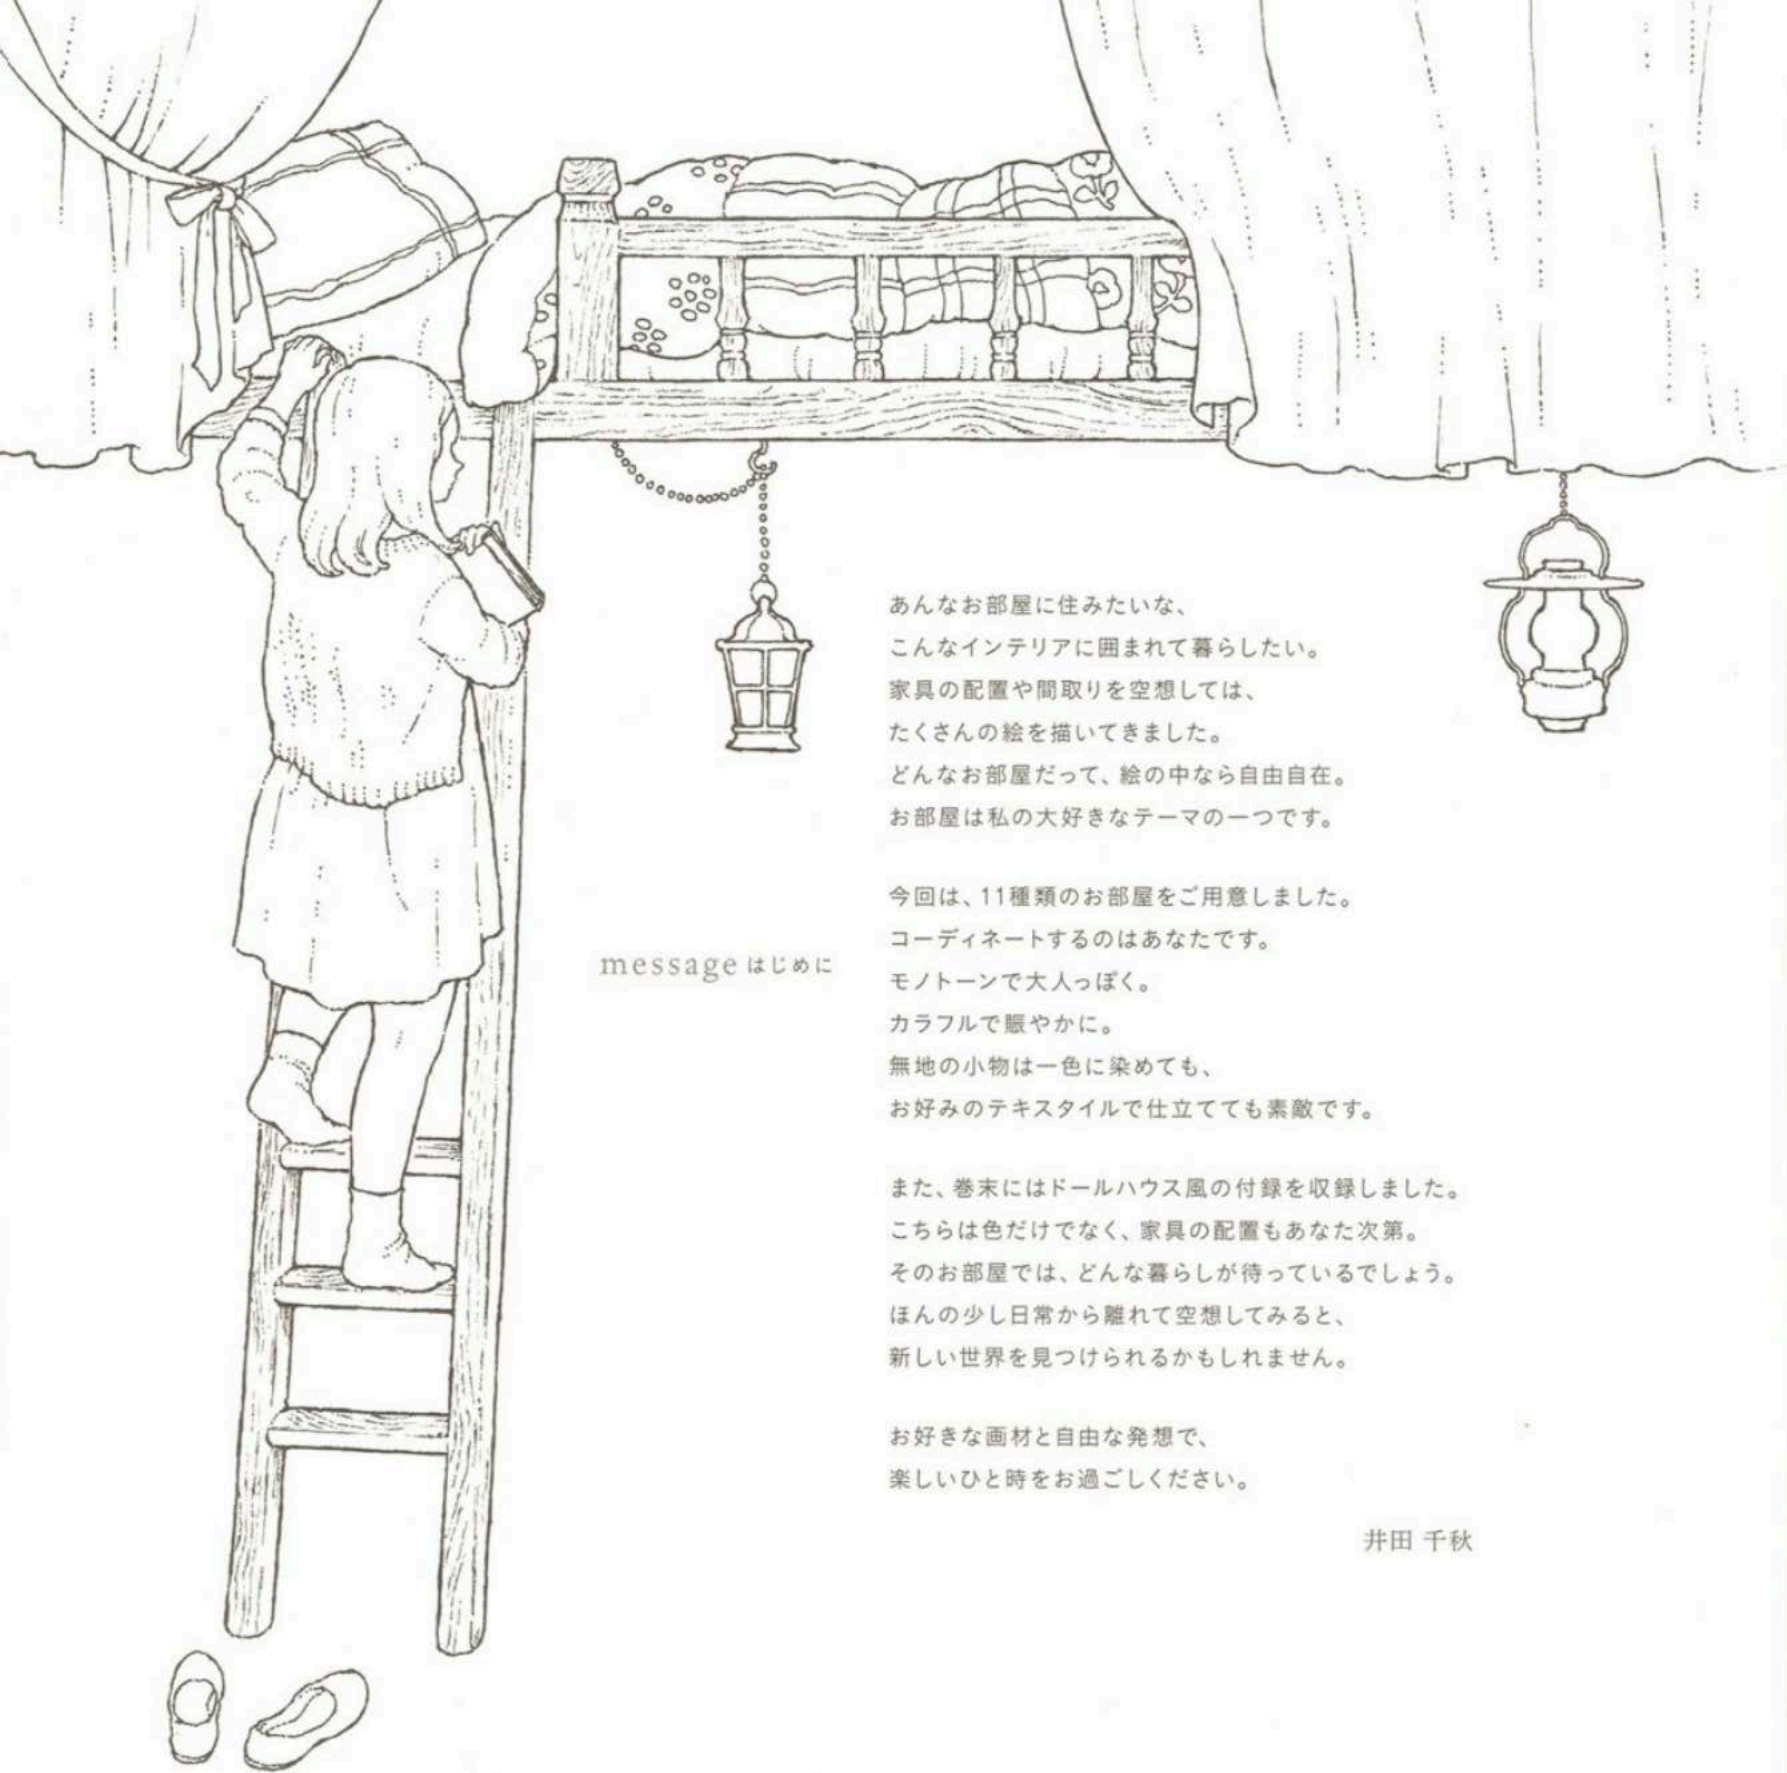 message はじめに
あんなお部屋に住みたいな、
こんなインテリアに囲まれて暮らしたい。
家具の配置や間取りを空想しては、
たくさんの絵を描いてきました。
どんなお部屋だって、絵の中なら自由自在。
お部屋は私の大好きなテーマの一つです。
今回は、11種類のお部屋をご用意しました。
コーディネートするのはあなたです。
モノトーンで大人っぽく。
カラフルで賑やかに。
無地の小物は一色に染めても、
お好みのテキスタイルで仕立てても素敵です。
また、巻末にはドールハウス風の付録を収録しました。
こちらは色だけでなく、家具の配置もあなた次第。
そのお部屋では、どんな暮らしが待っているでしょう。
ほんの少し日常から離れて空想してみると、
新しい世界を見つけられるかもしれません。
お好きな画材と自由な発想で、
楽しいひと時をお過ごしください。
井田 千秋